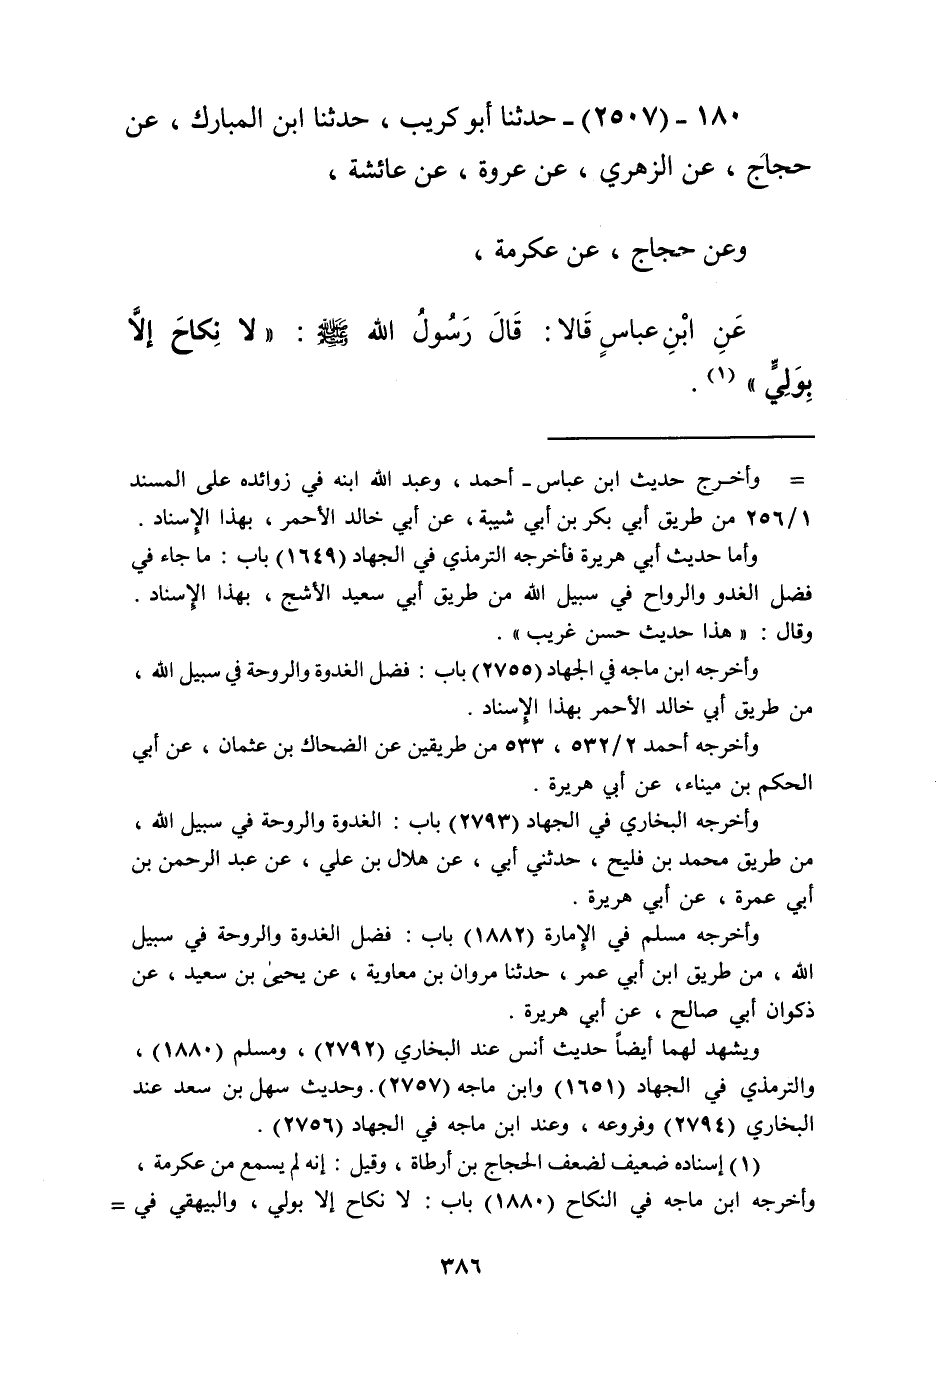 ١٨٠ ـ (٢٥٠٧) ـ حدثنا أبو كريب ، حدثنا ابن المبارك ، عن
حجاج ، عن الزهري ، عن عروة ، عن عائشة ،
وعن حجاج ، عن عكرمة ،
عَنِ ابْنِ عباسٍ قَالا : قَالَ رَسُولُ الله ﷺ : « لا نِكاحَ إلَّا
بِوَلِيٍّ » (١) .
= وأخرج حديث ابن عباس ـ أحمد ، وعبد الله ابنه في زوائده على المسند
٢٥٦/١ من طريق أبي بكر بن أبي شيبة ، عن أبي خالد الأحمر ، بهذا الإسناد .
وأما حديث أبي هريرة فأخرجه الترمذي في الجهاد (١٦٤٩) باب : ما جاء في
فضل الغدو والرواح في سبيل الله من طريق أبي سعيد الأشج ، بهذا الإسناد .
وقال : « هذا حديث حسن غريب » .
وأخرجه ابن ماجه في الجهاد (٢٧٥٥) باب : فضل الغدوة والروحة في سبيل الله ،
من طريق أبي خالد الأحمر بهذا الإسناد .
وأخرجه أحمد ٥٣٢/٢ ، ٥٣٣ من طريقين عن الضحاك بن عثمان ، عن أبي
الحكم بن ميناء، عن أبي هريرة .
وأخرجه البخاري في الجهاد (٢٧٩٣) باب : الغدوة والروحة في سبيل الله ،
من طريق محمد بن فليح ، حدثني أبي ، عن هلال بن علي ، عن عبد الرحمن بن
أبي عمرة ، عن أبي هريرة .
وأخرجه مسلم في الإمارة (١٨٨٢) باب : فضل الغدوة والروحة في سبيل
الله ، من طريق ابن أبي عمر ، حدثنا مروان بن معاوية ، عن يحيىٰ بن سعيد ، عن
ذكوان أبي صالح ، عن أبي هريرة .
ويشهد لهما أيضاً حديث أنس عند البخاري (٢٧٩٢) ، ومسلم (١٨٨٠) ،
والترمذي في الجهاد (١٦٥١) وابن ماجه (٢٧٥٧). وحديث سهل بن سعد عند
البخاري (٢٧٩٤) وفروعه ، وعند ابن ماجه في الجهاد (٢٧٥٦) .
(١) إسناده ضعيف لضعف الحجاج بن أرطاة ، وقيل : إنه لم يسمع من عكرمة ،
وأخرجه ابن ماجه في النكاح (١٨٨٠) باب : لا نكاح إلا بولي ، والبيهقي في =
٣٨٦